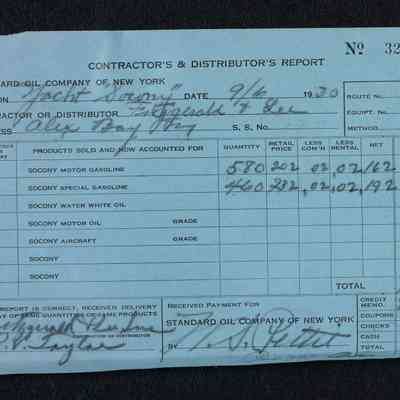 Nº 32
CONTRACTOR'S & DISTRIBUTOR'S REPORT
ARD OIL COMPANY OF NEW YORK
ON Yacht "Socony" DATE 9/6 1930 ROUTE NO.
ACTOR OR DISTRIBUTOR Fitzgerald & Lee EQUIPT. NO.
ESS Alex Bay NY S. S. NO. METHOD
PRODUCTS SOLD AND NOW ACCOUNTED FOR QUANTITY RETAIL PRICE LESS COM'N LESS RENTAL NET
SOCONY MOTOR GASOLINE 580 202 .02 .02 162
SOCONY SPECIAL GASOLINE 460 232 .02 .02 192
SOCONY WATER WHITE OIL
SOCONY MOTOR OIL GRADE
SOCONY AIRCRAFT GRADE
SOCONY
SOCONY
TOTAL
REPORT IS CORRECT, RECEIVED DELIVERY
AY OF SAME QUANTITIES OF SAME PRODUCTS
RECEIVED PAYMENT FOR
STANDARD OIL COMPANY OF NEW YORK
BY
CREDIT MEMO.
COUPONS
CHECKS
CASH
TOTAL